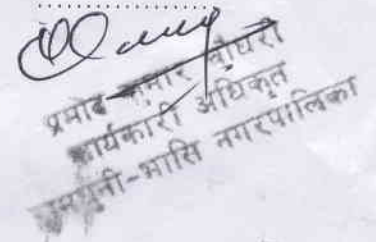 प्रमोद कुमार चौधरी
कार्यकारी अधिकृत
रामधुनी-भासि नगरपालिका